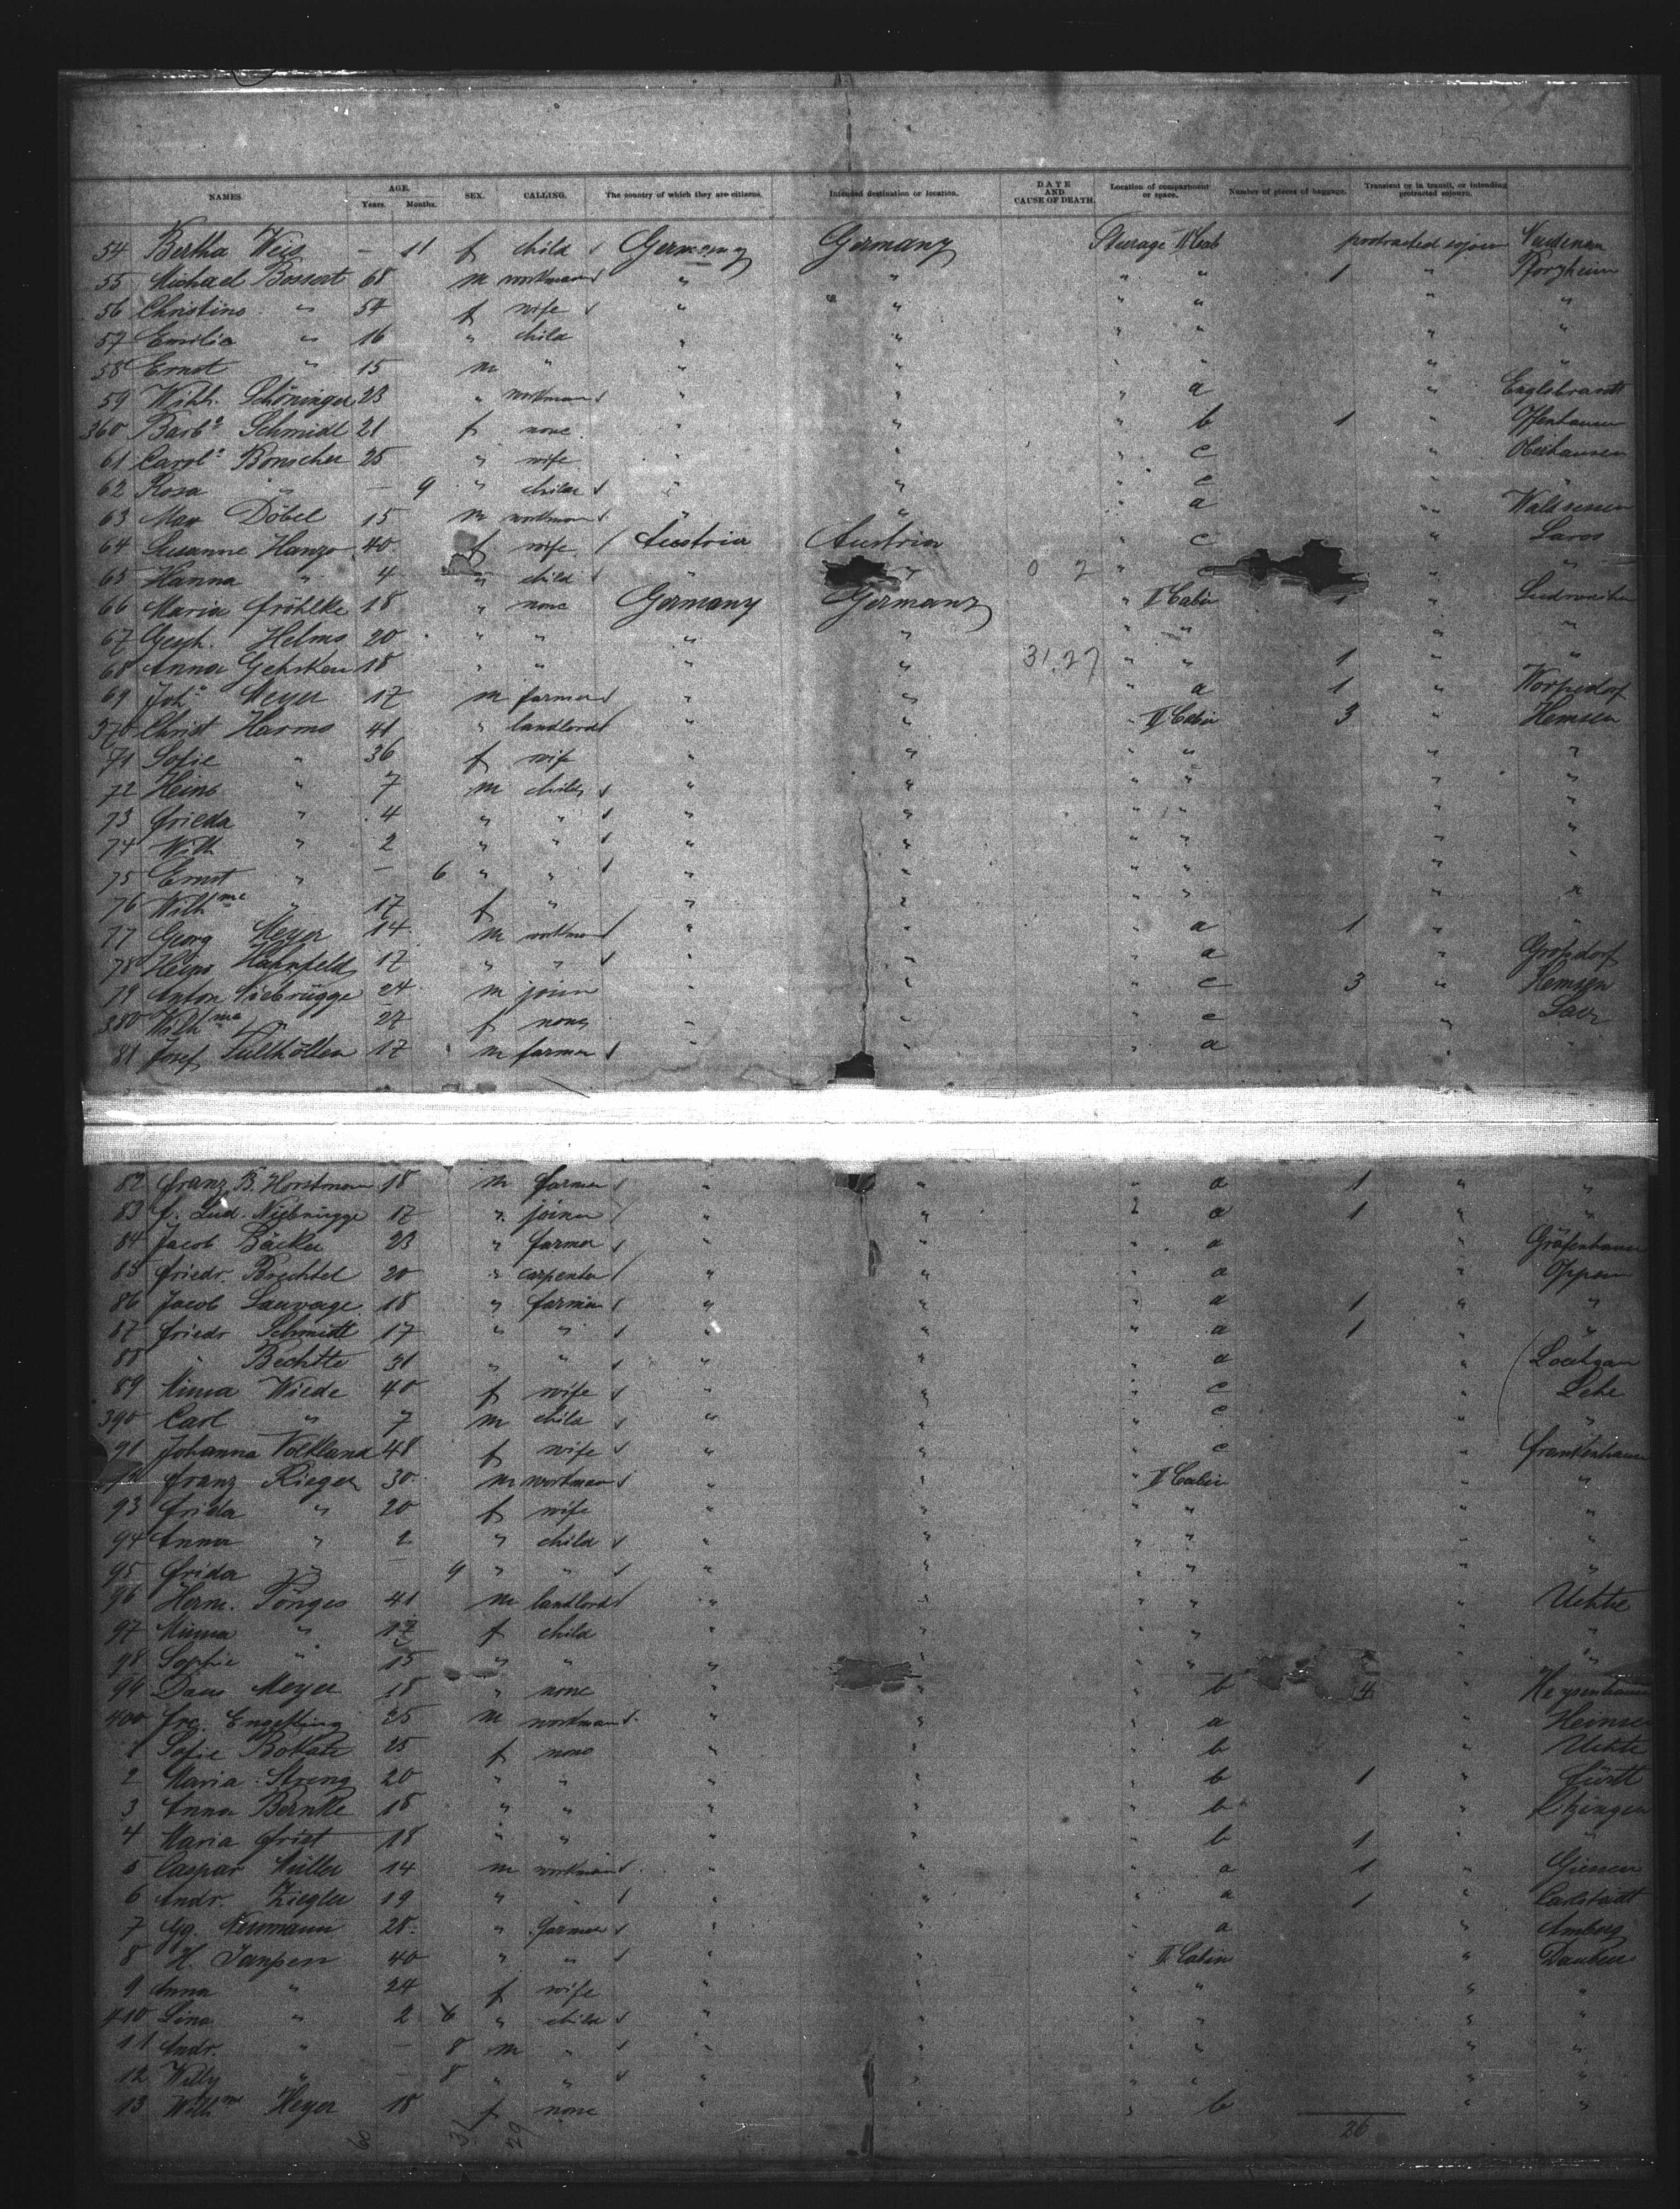 NAMES AGE. Years. Months. SEX. CALLING. The country of which they are citizens. Intended destination or location. DATE AND CAUSE OF DEATH. Location of compartment or space. Number of pieces of baggage. Transient or in transit, or intending protracted sojourn.
54 Bertha Weis — 11 f child Germany Germany Steerage II Cab protracted sojourn
55 Michael Bossert 68 m workman " " " " 1 " Pforzheim
56 Christine " 54 f wife " " " " " "
57 Emilie " 16 " child " " " " " "
58 Ernst " 15 m " " " " " " "
59 Wilh. Schöninger 23 " workman " " " a " Englsbrandt
360 Barb.a Schmidt 21 f none " " " b 1 "
61 Carol.e Bonscher 25 " wife " " " c "
62 Rosa " — 9 " child " " " c "
63 Max Döbel 15 m workman " " " a "
64 Susanne Hanzo 40 f wife Austria Austria " c " Saros
65 Hanna " 4 " child " " " c " "
66 Maria Fröhlke 18 " none Germany Germany " II Cabin 1 "
67 Gesch. Helms 20 " " " " " " " "
68 Anna Gehrken 18 " " " " " " 1 " "
69 Joh.n Meyer 17 m farmer " " " a 1 " Worpsdorf
370 Christ Harms 41 " landlord " " " II Cabin 3 " Hemsen
71 Sofie " 36 f wife " " " " " "
72 Heinr " 7 m child " " " " " "
73 Frieda " 4 " " " " " " " "
74 Wilh " 2 " " " " " " " "
75 Ernst " — 6 " " " " " " "
76 Wilhme " 17 f " " " " " " "
77 Georg Meyer 14 m workman " " " a 1 " "
78 Heinr Hahnfeld 17 " " " " " a "
79 Anton Niebrügge 24 m joiner " " " c 3 " Hemsen
380 Wilhme " 27 f none " " " c " Laer
81 Josef 17 m farmer " " " a "
82 Franz B. Horstmann 18 m farmer " " " a 1 " "
83 F. Lud. Niebrügge 17 " joiner " " " a 1 " "
84 Jacob Bäcker 23 " farmer " " " a " Gräfenhausen
85 Friedr. Brechtel 20 " carpenter " " " a "
86 Jacob Sauvage 18 " farmer " " " a 1 " "
87 Friedr Schmidt 17 " " " " " a 1 " "
88 " Bechtle 31 " " " " " a " Löchgau
89 Minna Wiede 40 f wife " " " c Lehe
390 Carl " 7 m child " " " c " "
91 Johanna Volkland 48 f wife " " " c " Frankenhausen
92 Franz Rieger 30 m workman " " " II Cabin " "
93 Frieda " 20 f wife " " " " " "
94 Anna " 2 " child " " " " " "
95 Frida " — 9 " " " " " " " "
96 Herm. Tönges 41 m landlord " " " " " Uchte
97 Minna " 17 f child " " " " " "
98 Sophie " 15 " " " " " " " "
99 Meyer 18 " none " " " b 4 "
400 Frc. Engelking 25 m workman " " " a Heinsen
1 Sofie 25 f none " " " b " Uchte
2 Maria Streng 20 " " " " " b 1 " Fürth
3 Anna Bernke 18 " " " " " b " Kitzingen
4 Maria Frist 18 " " " " " b 1 "
5 Caspar Müller 14 m workman " " " a 1 " Giessen
6 Andr. Ziegler 19 " " " " " a 1 " Carlstadt
7 Gg. Neumann 28 " farmer " " a " Amberg
8 H. Janßen 40 " " " " " II Cabin "
9 Anna " 24 f wife " " " " " "
410 Lina " 2 6 " child " " " " " "
11 Andr. " — 8 m " " " " " " "
12 Willy " — 8 " " " " " " " "
13 Wilhme Heyer 18 f none " " " b " "
26